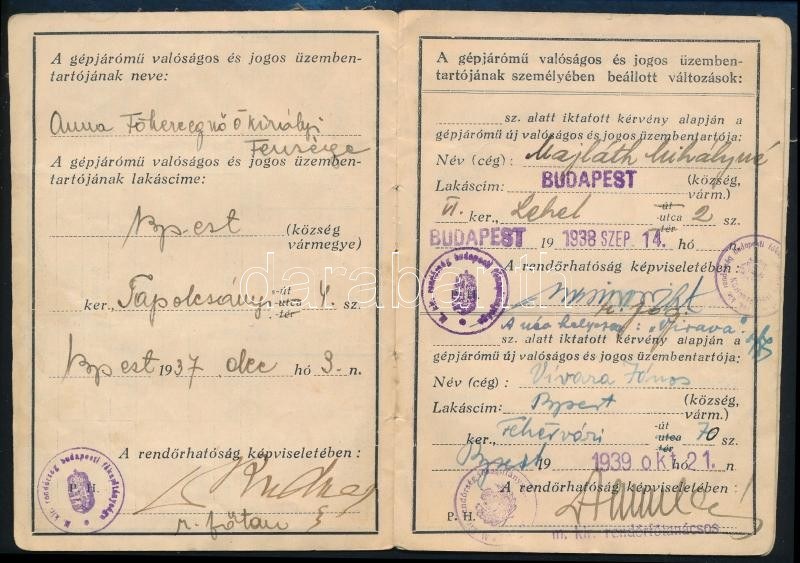 A gépjárómű valóságos és jogos üzemben-
tartójának neve:
Anna Főhercegnő Ő királyi
Fensége
A gépjárómű valóságos és jogos üzemben-
tartójának lakáscime:
Bpest (község
vármegye)
ker., Tapolcsányi -út utca -tér 4. sz.
Bpest 1937 dec hó 3-n.
A rendőrhatóság képviseletében:
P. H.
M. kir. rendőrség budapesti főkapitánysága
r. főtan
A gépjárómű valóságos és jogos üzemben-
tartójának személyében beállott változások:
sz. alatt iktatott kérvény alapján a
gépjárómű új valóságos és jogos üzembentartója:
Név (cég): Majláth Mihályné
Lakáscím: BUDAPEST (község,
várm.)
VI. ker., Lehel -út utca -tér 2 sz.
BUDAPEST 19 1938 SZEP. 14. hó n.
A rendőrhatóság képviseletében:
M. kir. rendőrség budapesti főkapitánysága
A név helyesen: "Vivava".
sz. alatt iktatott kérvény alapján a
gépjárómű új valóságos és jogos üzembentartója:
Név (cég): Vivara János
Lakáscím: Bpest (község,
várm.)
ker., Fehérvári -út utca -tér 70 sz.
Bpest 19 1939 OKT. 21. hó n.
A rendőrhatóság képviseletében:
P. H.
m. kir. rendőrfőtanácsos
darabanth